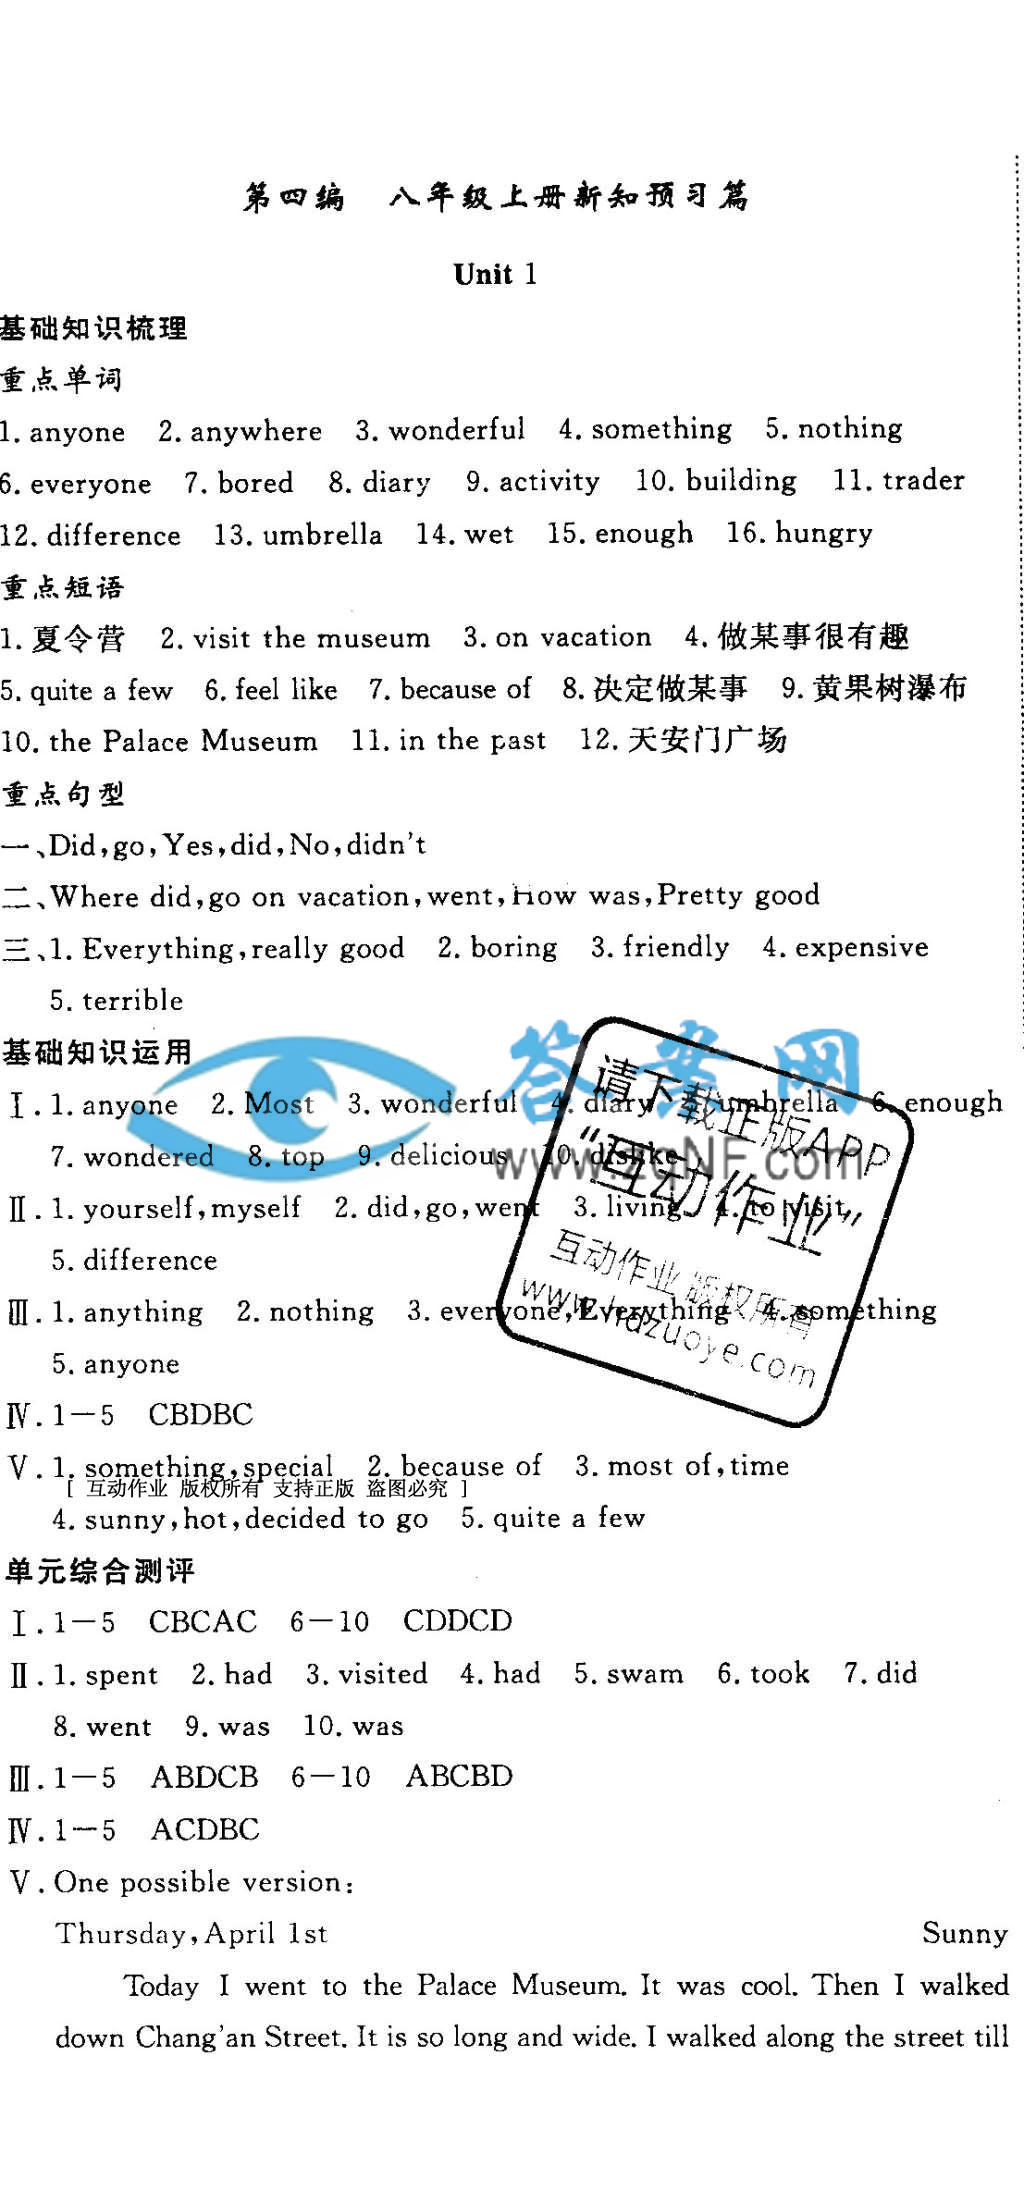 第四编　八年级上册新知预习篇
Unit 1
基础知识梳理
重点单词
1. anyone 2. anywhere 3. wonderful 4. something 5. nothing
6. everyone 7. bored 8. diary 9. activity 10. building 11. trader
12. difference 13. umbrella 14. wet 15. enough 16. hungry
重点短语
1. 夏令营 2. visit the museum 3. on vacation 4. 做某事很有趣
5. quite a few 6. feel like 7. because of 8. 决定做某事 9. 黄果树瀑布
10. the Palace Museum 11. in the past 12. 天安门广场
重点句型
一、Did,go,Yes,did,No,didn't
二、Where did,go on vacation,went,How was,Pretty good
三、1. Everything,really good 2. boring 3. friendly 4. expensive
5. terrible
基础知识运用
答案网
请下载正版APP
Ⅰ. 1. anyone 2. Most 3. wonderful 4. diary umbrella 6. enough
7. wondered 8. top 9. delicious 10. dislike
www.zqNF.com
"互动作业"
Ⅱ. 1. yourself,myself 2. did,go,went 3. living 4. to visit
5. difference
互动作业 版权所有
Ⅲ. 1. anything 2. nothing 3. everyone,Everything 4. something
www.hdzuoye.com
5. anyone
Ⅳ. 1—5 CBDBC
Ⅴ. 1. something,special 2. because of 3. most of,time
[ 互动作业 版权所有 支持正版 盗图必究 ]
4. sunny,hot,decided to go 5. quite a few
单元综合测评
Ⅰ. 1—5 CBCAC 6—10 CDDCD
Ⅱ. 1. spent 2. had 3. visited 4. had 5. swam 6. took 7. did
8. went 9. was 10. was
Ⅲ. 1—5 ABDCB 6—10 ABCBD
Ⅳ. 1—5 ACDBC
Ⅴ. One possible version:
Thursday,April 1st Sunny
Today I went to the Palace Museum. It was cool. Then I walked
down Chang'an Street. It is so long and wide. I walked along the street till